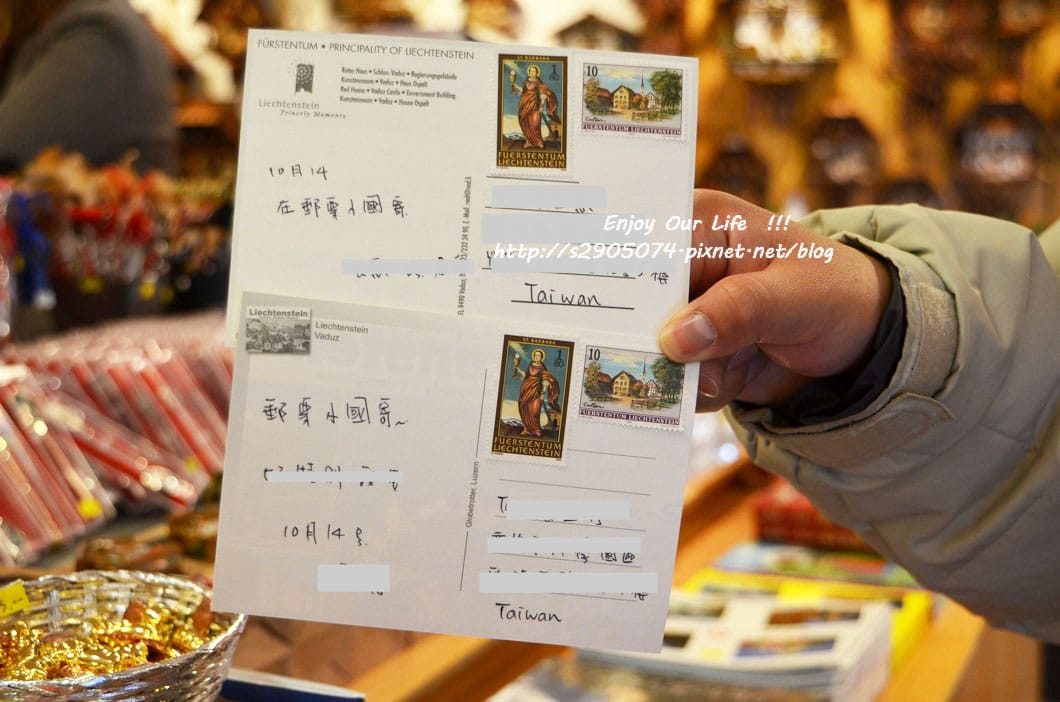 FÜRSTENTUM • PRINCIPALITY OF LIECHTENSTEIN
Rotes Haus • Schloss Vaduz • Regierungsgebäude
Kunstmuseum • Vaduz • Haus Ospelt
Red House • Vaduz Castle • Government Building
Kunstmuseum • Vaduz • House Ospelt
Liechtenstein
Princely Moments
ST. BARBARA
1 80
FUERSTENTUM
LIECHTENSTEIN
10
FUERSTENTUM LIECHTENSTEIN
10月14
在郵票小國寄.
Enjoy Our Life !!!
http://s2905074.pixnet.net/blog
Taiwan
Liechtenstein
Liechtenstein
Vaduz
ST. BARBARA
1 80
FUERSTENTUM
LIECHTENSTEIN
10
FUERSTENTUM LIECHTENSTEIN
郵票小國寄~
10月14日.
Globetrotter, Luzern
Taiwan